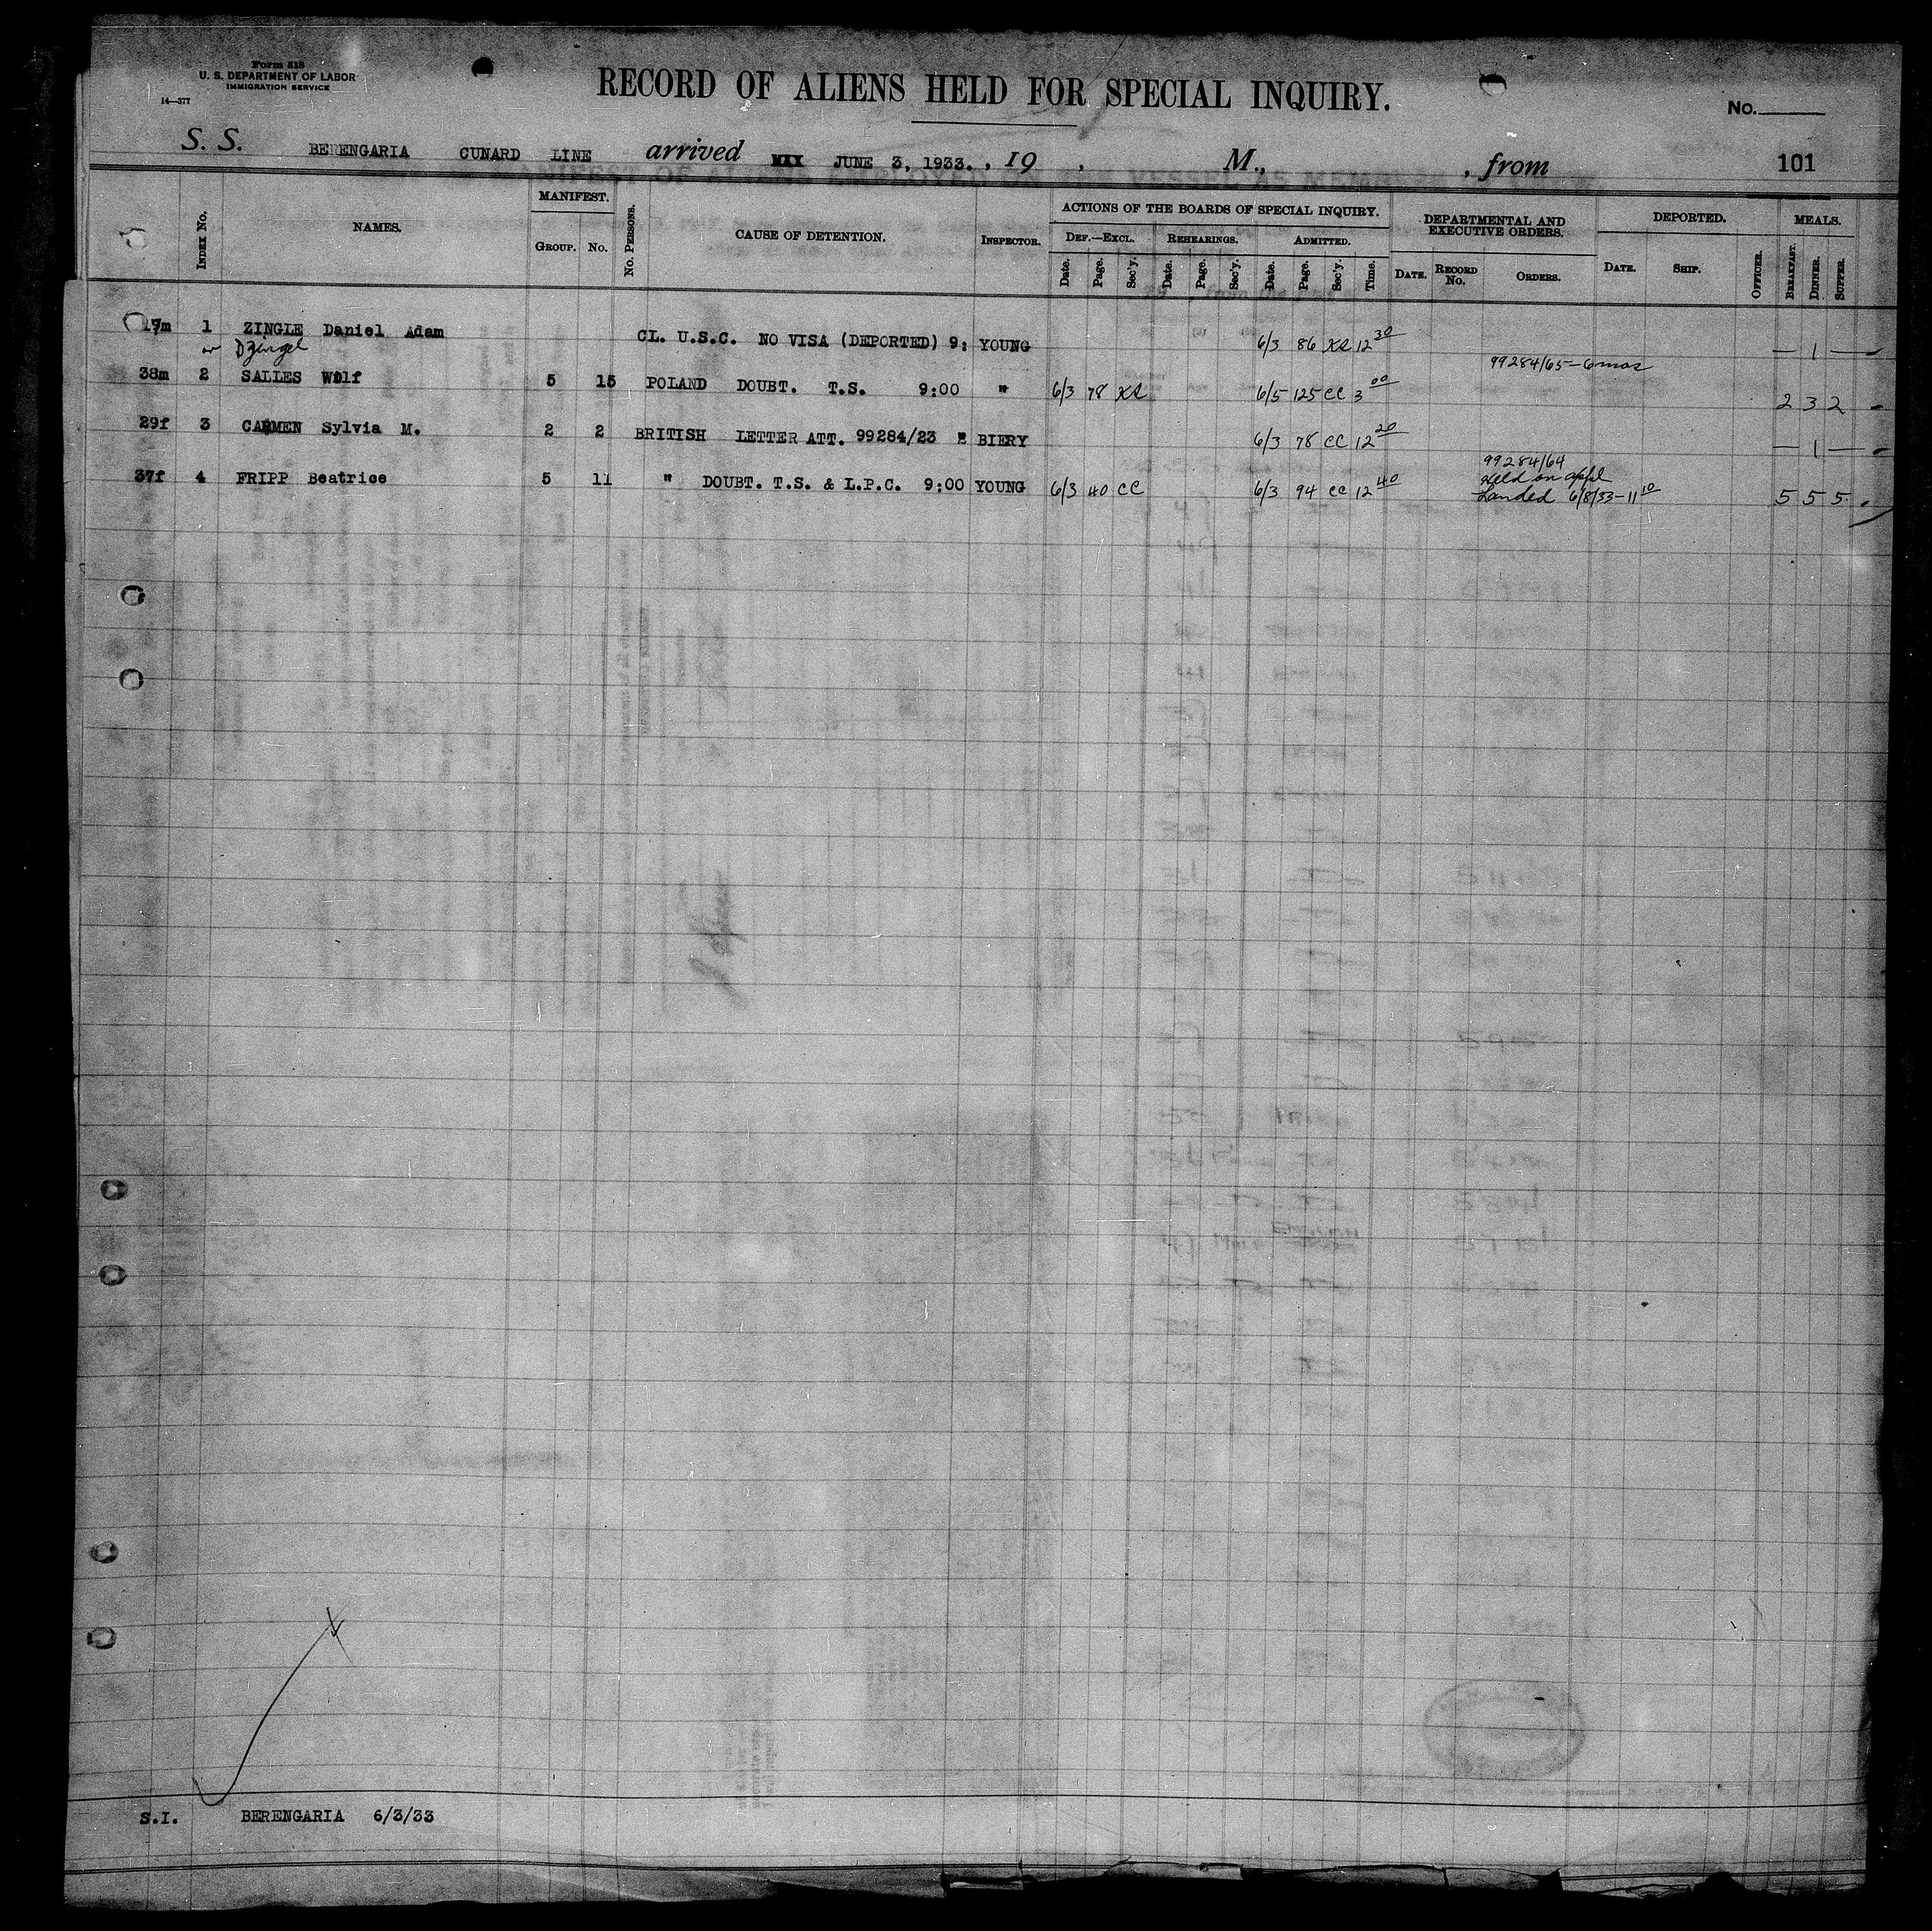 Form 518
U. S. DEPARTMENT OF LABOR
IMMIGRATION SERVICE
14—377
RECORD OF ALIENS HELD FOR SPECIAL INQUIRY.
No.
S. S. BERENGARIA CUNARD LINE arrived JUNE 3, 1933. , 19 , M., , from 101
INDEX No. NAMES. MANIFEST. GROUP. No. No. PERSONS. CAUSE OF DETENTION. INSPECTOR. ACTIONS OF THE BOARDS OF SPECIAL INQUIRY. DEPARTMENTAL AND EXECUTIVE ORDERS. DEPORTED. MEALS.
DEF.—EXCL. REHEARINGS. ADMITTED.
Date. Page. Sec'y. Date. Page. Sec'y. Date. Page. Sec'y. Time. DATE. RECORD No. ORDERS. DATE. SHIP. OFFICER. BREAKFAST. DINNER. SUPPER.
17m 1 ZINGLE Daniel Adam CL. U.S.C. NO VISA (DEPORTED) 9: YOUNG 6/3 86 12 30 — 1 —
or Dzingel
99284/65—6mos
38m 2 SALLES Wolf 5 15 POLAND DOUBT. T.S. 9:00 " 6/3 78 6/5 125 CC 3 00 2 3 2 -
29f 3 CARMEN Sylvia M. 2 2 BRITISH LETTER ATT. 99284/23 " BIERY 6/3 78 CC 12 20 — 1 —
99284/64
Held on appl
37f 4 FRIPP Beatrice 5 11 " DOUBT. T.S. & L.P.C. 9:00 YOUNG 6/3 40 CC 6/3 94 CC 12 40 Landed 6/8/33—11 10 5 5 5
S.I. BERENGARIA 6/3/33